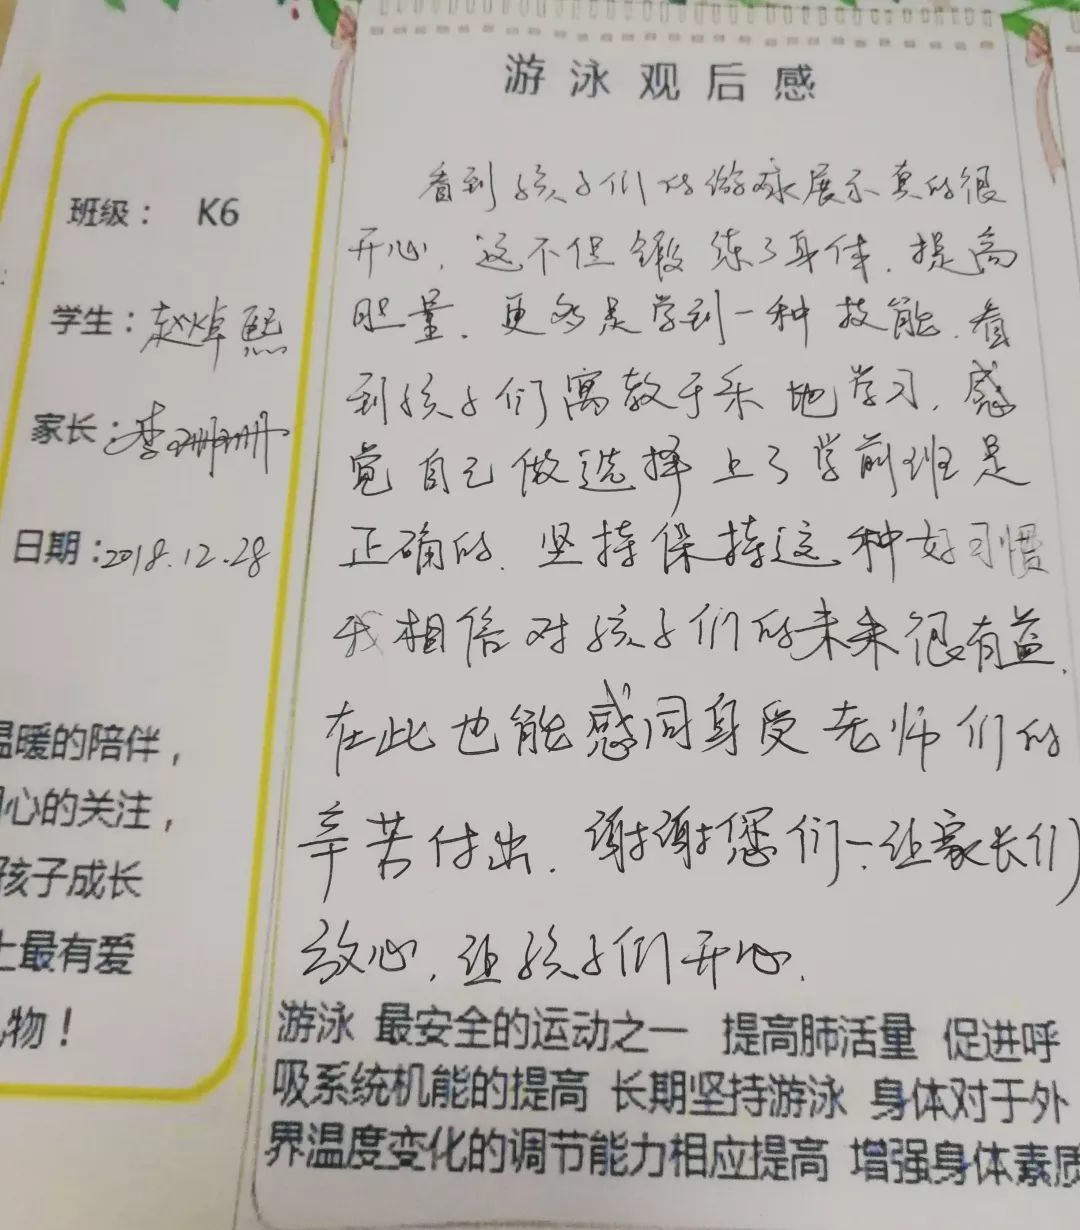 班级： K6
学生：赵焯熙
家长：李珊珊
日期：2018.12.28
温暖的陪伴，
心的关注，
孩子成长
上最有爱
物！
游泳观后感
看到孩子们的游泳展示真的很
开心，这不但锻练了身体，提高
胆量，更多是学到一种技能，看
到孩子们寓教于乐地学习，感
觉自己做选择上了学前班是
正确的，坚持保持这种好习惯
我相信对孩子们的未来很有益，
在此也能感同身受老师们的
辛苦付出，谢谢您们，让家长们
放心，让孩子们开心，
游泳 最安全的运动之一 提高肺活量 促进呼
吸系统机能的提高 长期坚持游泳 身体对于外
界温度变化的调节能力相应提高 增强身体素质